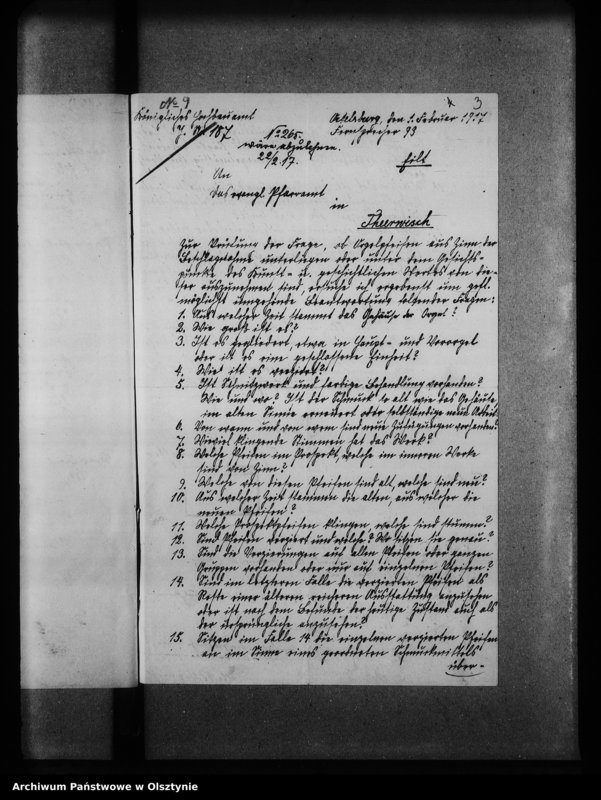 No 9
3
Königliches Hochbauamt
Ortelsburg, den 5. Februar 1917
J. N. 187
Fernsprecher 93
No 265.
wäre abzulehnen.
22/2. 17.
Eilt
An
das evangl. Pfarramt
in
Theerwisch
Zur Prüfung der Frage, ob Orgelpfeifen aus Zinn der
Beschlagnahme unterliegen oder unter dem Gesichts-
punkte des Kunst- u. geschichtlichen Wertes von die-
ser auszunehmen sind, ersuche ich ergebenst um gefl.
möglichst umgehende Beantwortung folgender Fragen:
1. Aus welcher Zeit stammt das Gehäuse der Orgel?
2. Wie groß ist es?
3. Ist es gegliedert, etwa in Haupt- und Vororgel
oder ist es eine geschlossene Einheit?
4. Wie ist es verziert?
5. Ist Schnitzwerk und farbige Behandlung vorhanden?
Wie und wo? Ist der Schmuck so alt wie das Gehäuse,
im alten Sinne erneuert oder selbständige neue Arbeit?
6. Von wann und von wem sind neue Zufügungen vorhanden?
7. Wieviel klingende Stimmen hat das Werk?
8. Welche Pfeifen im Prospekt, welche im inneren Werke
sind von Zinn?
9. Welche von diesen Pfeifen sind alt, welche sind neu?
10. Aus welcher Zeit stammen die alten, aus welcher die
neuen Pfeifen?
11. Welche Prospektpfeifen klingen, welche sind stumm?
12. Sind Pfeifen verziert und welche? Wo sitzen sie genau?
13. Sind die Verzierungen auf allen Pfeifen oder ganzen
Gruppen vorhanden oder nur auf einzelnen Pfeifen?
14. Sind im letzteren Falle die verzierten Pfeifen als
Reste einer älteren reicheren Ausstattung anzusehen
oder ist nach dem Befunde der heutige Zustand auch als
der ursprüngliche anzusehen?
15. Sitzen im Falle 14 die einzelnen verzierten Pfeifen
an im Sinne eines geordneten Schmuckmittels
über-
Archiwum Państwowe w Olsztynie